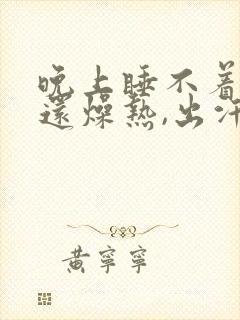 晚上睡不着
還燥熱,出汗
黃寧寧